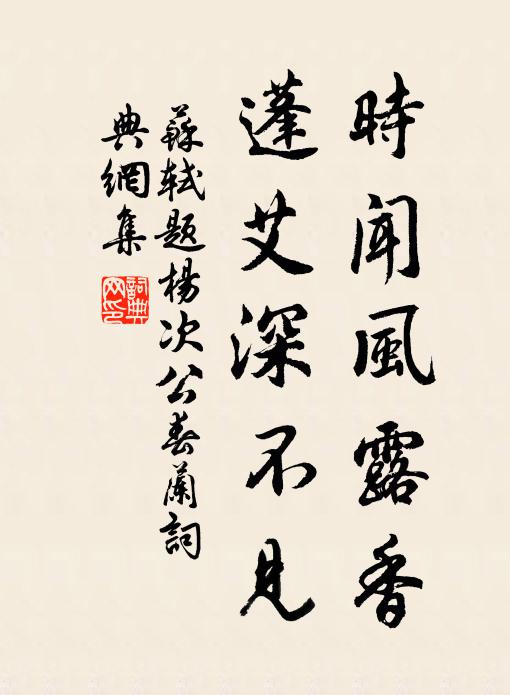 時聞風露香
蓬艾深不見
蘇軾題楊次公春蘭詞
典網集
詞典
网印